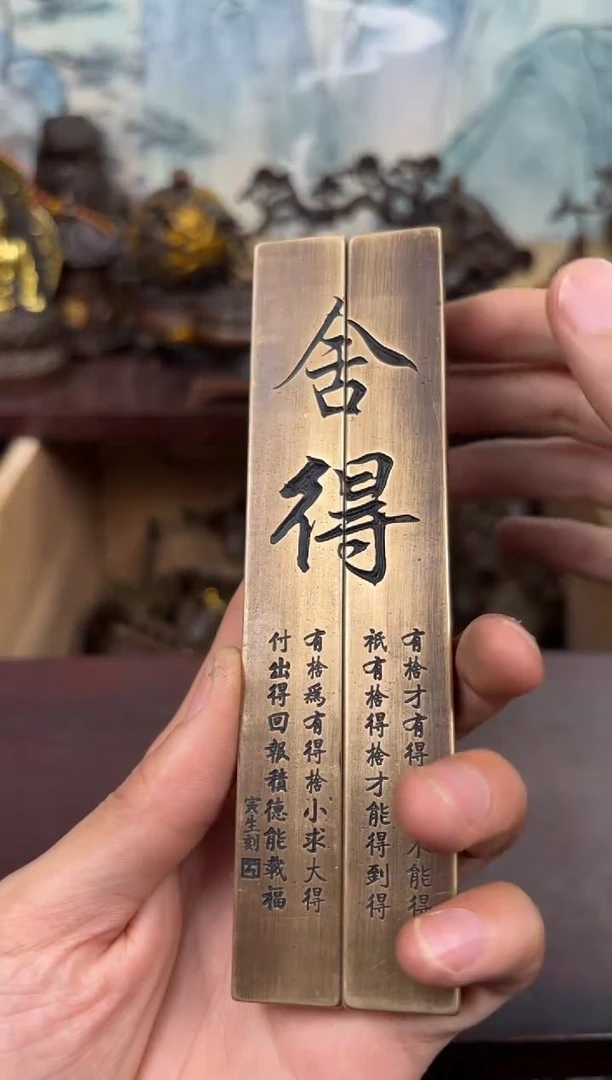 舍得
有捨才有得 不能得
衹有捨得捨才能得到得
有捨為有得捨小求大得
付出得回報積德能載福
寅生刻